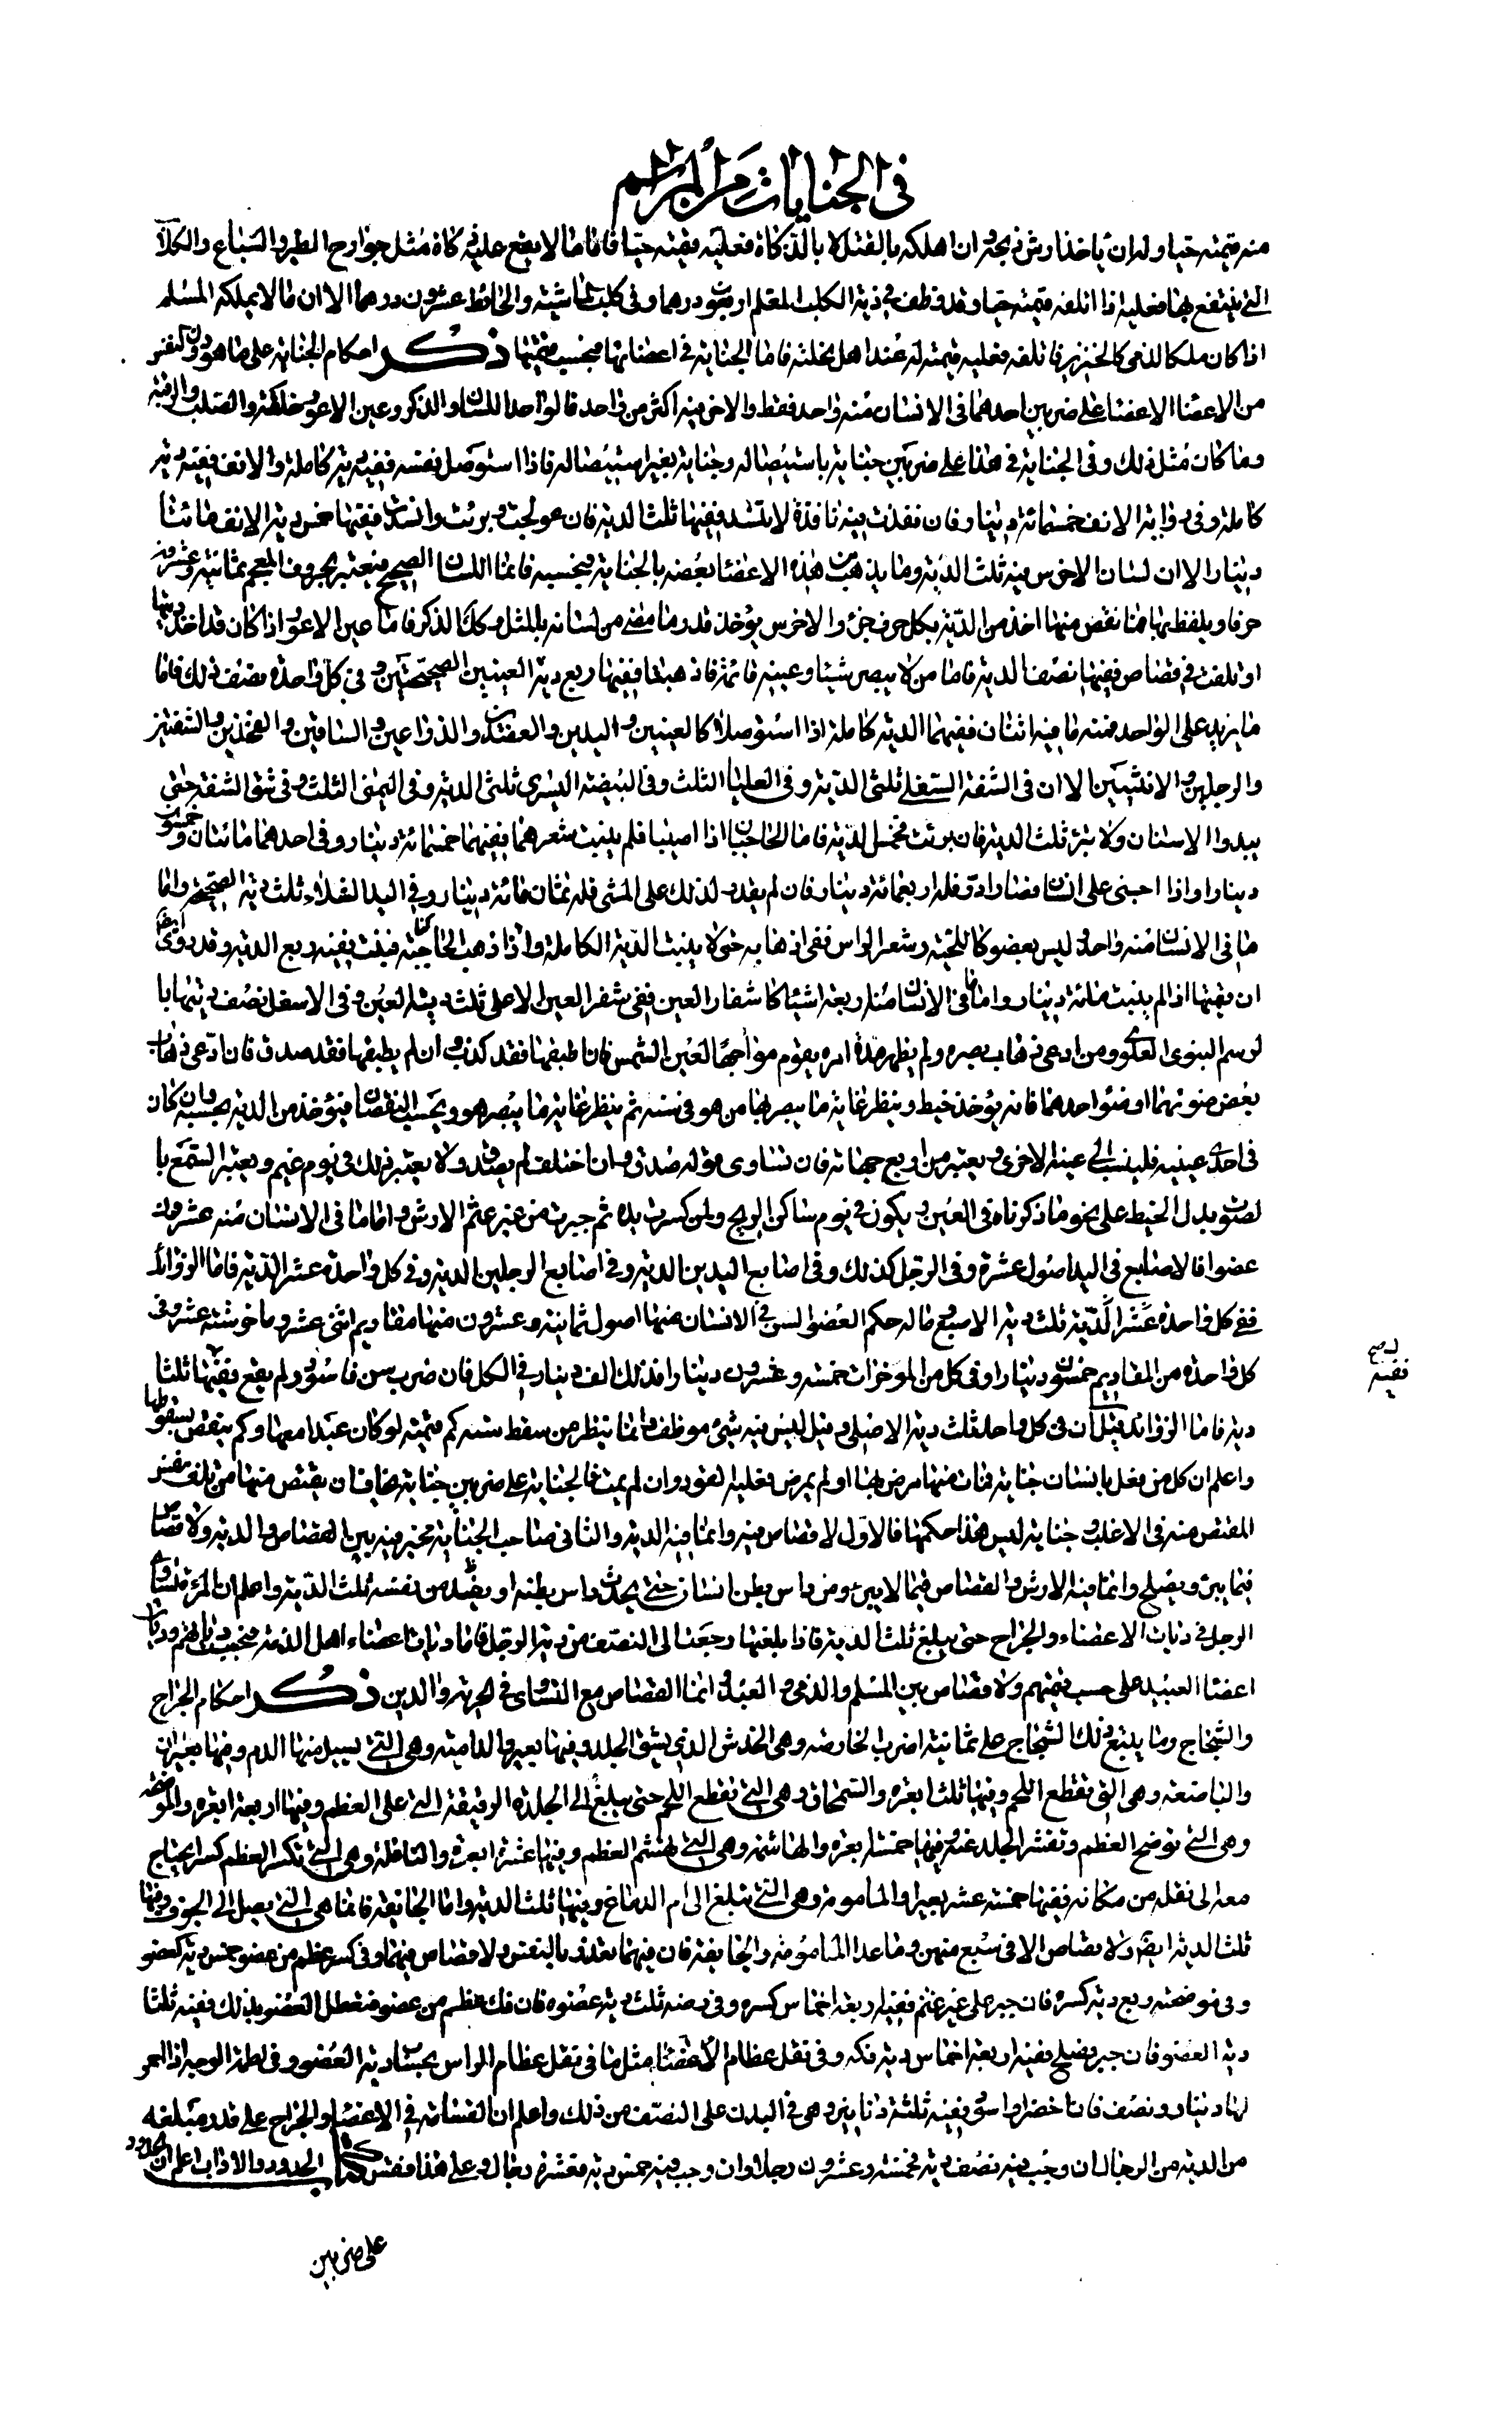 في الجنايات من المراسم
منه قيمته حيا وله ان ياخذ ارش ذبحه وان اهلكه بالقتل لا بالذكاة فعليه قيمته حيا فاما ما لا يقع عليه ذكاة مثل جوارح الطير والسباع والكلاب
التي ينتفع بها فعليه اذا اتلفه قيمته حيا وقد وظف في دية الكلب المعلم اربعون درهما وفي كلب الماشية والحائط عشرون درهما الا ان ما لا يملكه المسلم
اذا كان ملكا لذمي كالخنزير فاتلفه فعليه قيمته له عند اهل نحلته فاما الجناية في اعضائها فبحسب قيمتها ذكر احكام الجناية على ما هو دون النفس
من الاعضاء الاعضا على ضربين احدهما في الانسان منه واحد فقط والاخر منه اكثر من واحد فالواحد اللسان والذكر وعين الاعور خلقة والصلب والرقبة
وما كان مثل ذلك وفي الجناية في هذا على ضربين جناية باستيصاله وجناية بغير استيصاله فاذا استوصل نفسه ففيه دية كاملة والانف ففيه دية
كاملة وفي روثة الانف خمسمائة دينار فان نفذت فيه نافذة لا تنسد ففيها ثلث الدية فان عولجت وبرئت وانسدت ففيها خمس دية الانف مائتا
دينار الا ان لسان الاخرس فيه ثلث الدية وما يذهب من هذه الاعضا بعضه بالجناية فبحسبه فاما اللسان الصحيح فيعتبر بحروف المعجم ثمانية وعشرين
حرفا ويلفظ بها فما نقص منها اخذ من الدية بكل حرف جزء والاخرس يؤخذ قدر ما مضى من لسانه بالمثل وكذلك الذكر فاما عين الاعور اذا كان قد اخذ ديتها
او تلفت في قصاص ففيها نصف الدية فاما من لا يبصر شيئا وعينيه قائمة فاذهبها ففيها ربع دية العينين الصحيحتين وفي كل واحدة نصف ذلك فاما
ما يزيد على الواحد فمنه ما فيه اثنان ففيهما الدية كاملة اذا استوصلا كالعينين واليدين والعضدين والذراعين والساقين والفخذين والشفتين
والرجلين والانثيين الا ان في الشفة السفلى ثلثي الدية وفي العليا الثلث وفي البيضة اليسرى ثلثي الدية وفي اليمنى الثلث وفي شق الشفة حتى
يبدوا الاسنان ولا تبرء ثلث الدية فان برئت فخمس الدية فاما الحاجبان اذا اصيبا فلم ينبت شعرهما ففيهما خمسمائة دينار وفي احدهما مائتان وخمسون
دينارا واذا احنى على انسان فصار ادر فله اربعمائة دينار فان لم يقدر لذلك على المشي فله ثمان مائة دينار وفي اليد الشلاء ثلث دية الصحيحة واما
ما في الانسان منه واحد ليس بعضو كاللحية وشعر الراس ففي اذهابه حتى لا ينبت الدية الكاملة واذا ذهب اللحية فنبتت ففيه ربع الدية وقد روي ايضا
ان فيها اذا لم ينبت مائة دينار واما ما في الانسان منه اربعة اشيا كاشفار العين ففي شفر العين الاعلى ثلث دية العين وفي الاسفل نصف ديتها با
لرسم النبوي العلوي ومن ادعى ذهاب بصره ولم يظهر صدق امره يقوم مواجها لعين الشمس فان اطبقها فقد كذب وان لم يطبقها فقد صدق فان ادعى ذهاب
بعض ضوئهما او ضوء احدهما فانه يؤخذ خيط وينظر غاية ما يبصر بها من هو في سنه ثم ينظر غاية ما يبصر هو ويحسب النقصان فيؤخذ من الدية بحسبه وان كان
في احدى عينيه فلينسب الى عينه الاخرى ويعتبر من اربع جهاته فان تساوى قوله صدق وان اختلف لم يصدق ولا يعتبر ذلك في يوم غيم ويعتبر السمع با
لصوت بدل الخيط على نحو ما ذكرناه في العين ويكون في يوم ساكن الريح ولمن كسرت يده ثم جبرت من غير عثم الارش واما ما في الانسان منه عشرون
عضوا فالاصابع في اليد اصول عشرة وفي الرجل كذلك وفي اصابع اليدين الدية وفي اصابع الرجلين الدية وفي كل واحدة عشر الدية فاما الزوائد
ففي كل واحدة عشر الدية ثلث دية الاصبع ماله حكم العضو السن في الانسان منها اصول ثمانية وعشرون منها مقاديم اثنى عشر ومآخر ستة عشر وفي
كل واحدة من المقاديم خمسون دينارا وفي كل من الموخرات خمسة وعشرون دينارا فذلك الف دينار في الكل فان ضرب سن فاسود ولم يقع ففيها ثلثا
دية فاما الزوائد فقيل ان في كل واحد ثلث دية الاصلي وقيل ليس فيه شيء موظف وانما ينظر من سقط سنه كم قيمته لو كان عبدا معها وكم ينقص بسقوطها
واعلم ان كل من فعل بانسان جناية فمات منها مرض بها او لم يمرض فعليه القود وان لم يمت فالجناية على ضربين جناية يخاف ان يقتص منها من تلف نفس
المقتص منه في الاغلب وجناية ليس هذا حكمها فالاول لا قصاص فيه وانما فيه الدية والثاني صاحب الجناية مخير فيه بين القصاص والدية ولا قصاص
فيما يبرء ويصلح وانما فيه الارش والقصاص فيما لا يبرء ومن داس بطن انسان حتى يحدث داس بطنه او يفتد من نفسه ثلث الدية واعلم ان المرءة تساوى
الرجل في ديات الاعضاء والجراح حتى يبلغ ثلث الدية فاذا بلغتها رجعت الى النصف من دية الرجل فاما ديات اعضاء اهل الذمة فبحسب دياتهم وديات
اعضا العبيد على حسب قيمتهم ولا قصاص بين المسلم والذمي والعبد وانما القصاص مع التساوى في الحرية والدين ذكر احكام الجراح
والشجاج وما يتبع ذلك الشجاج على ثمانية اضرب الخارصة وهي الخدش الذي يشق الجلد وفيها بعير والدامية وهي التي يسيل منها الدم وفيها بعيران
والباضعة وهي التي تقطع اللحم وفيها ثلث ابعرة والسمحاق وهي التي تقطع اللحم حتى يبلغ الى الجلدة الرقيقة التي على العظم وفيها اربعة ابعرة والموضحة
وهي التي توضح العظم وتقشر الجلد عنه وفيها خمسة ابعرة والهاشمة وهي التي تهشم العظم وفيها عشرة ابعرة والناقلة وهي التي تكسر العظم كسرا يحتاج
معه الى نقله من مكانه ففيها خمسة عشر بعيرا والمامومة وهي التي تبلغ الى ام الدماغ وفيها ثلث الدية واما الجائفة فانما هي التي يصل الى الجوف وفيها
ثلث الدية ايضا ولا يقاص الا في سبع منهن وما عدا المامومة والجايفة فان فيهما تغرر بالنفس ولا قصاص فيهما وفي كسر عظم من عضو خمس دية العضو
وفي موضحته ربع دية كسره فان جبر على غير عثم ففيه اربعة اخماس كسره وفي رضه ثلث دية عضوه فان فك عظم من عضو فتعطل العضو بذلك ففيه ثلثا
دية العضو فان جبر وصلح ففيه اربعة اخماس دية فكه وفي نقل عظام الاعضا مثل ما في نقل عظام الراس بحساب دية العضو وفي لطمة الوجه اذا احمر
لها دينار ونصف فان اخضر او اسود ففيه ثلثة دنانير وهي في البدن على النصف من ذلك واعلم ان القسامة في الاعضاء والجراح على قدر مبلغه
من الدية من الرجال ان وجب فيه نصف دية فخمسة وعشرون رجلا وان وجب فيه خمس دية فعشرة رجال وعلى هذا فقس كتاب الحدود والاداب اعلم ان الحدود
على ضربين